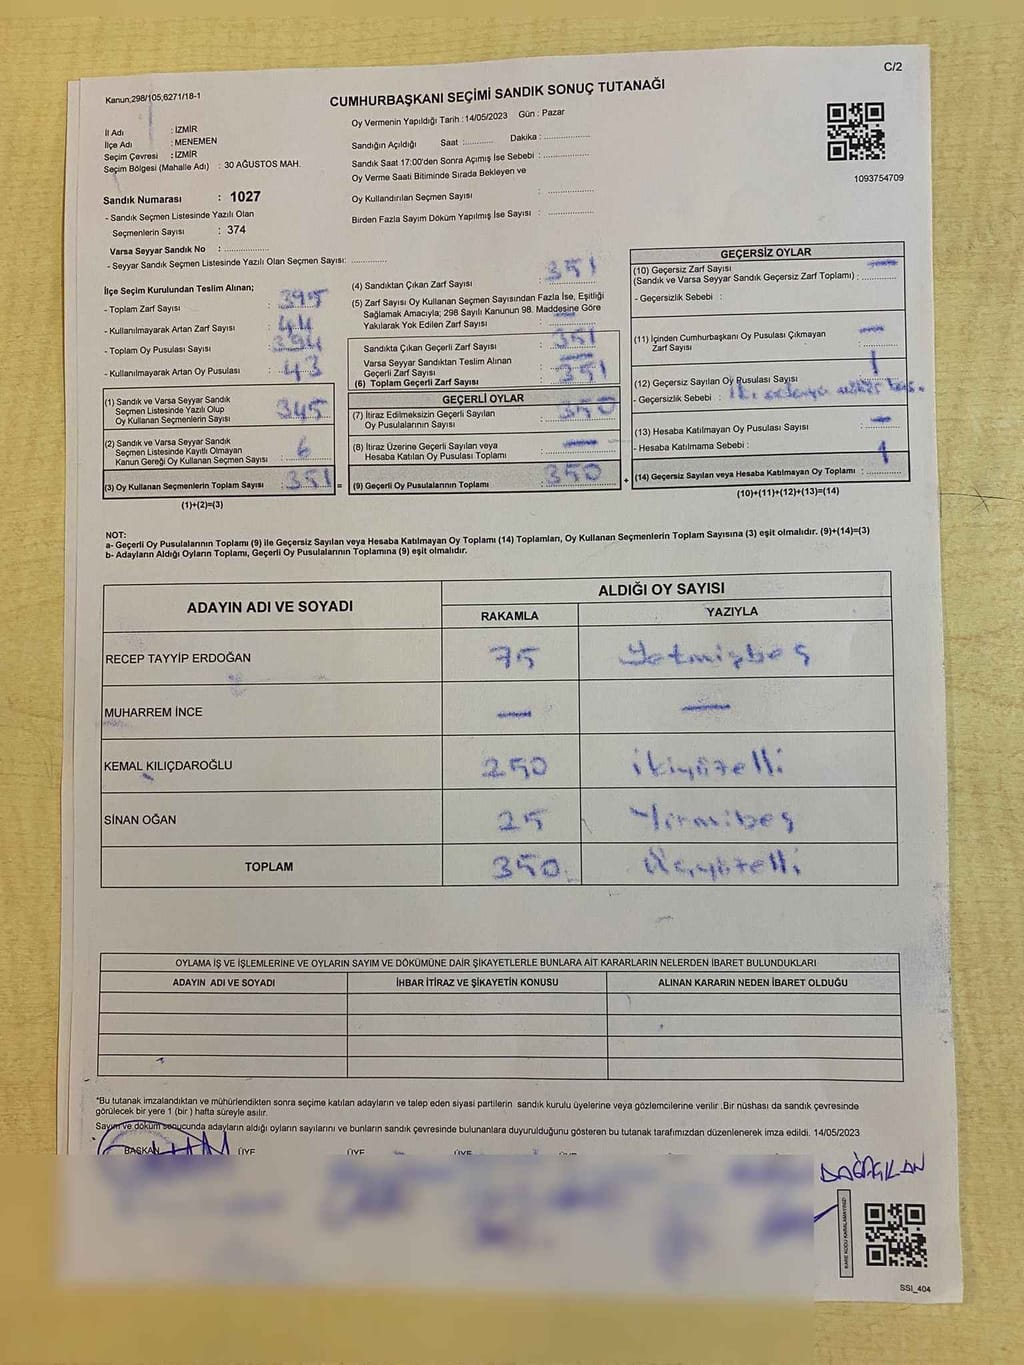 C/2
Kanun;298/105,6271/18-1
CUMHURBAŞKANI SEÇİMİ SANDIK SONUÇ TUTANAĞI
1093754709
İl Adı : İZMİR
İlçe Adı : MENEMEN
Seçim Çevresi : İZMİR
Seçim Bölgesi (Mahalle Adı) : 30 AĞUSTOS MAH.
Sandık Numarası : 1027
- Sandık Seçmen Listesinde Yazılı Olan
Seçmenlerin Sayısı : 374
Varsa Seyyar Sandık No : ...............
- Seyyar Sandık Seçmen Listesinde Yazılı Olan Seçmen Sayısı: ............
Oy Vermenin Yapıldığı Tarih : 14/05/2023 Gün : Pazar
Sandığın Açıldığı Saat :.......... Dakika :...............
Sandık Saat 17:00'den Sonra Açımış İse Sebebi : ...............
Oy Verme Saati Bitiminde Sırada Bekleyen ve
Oy Kullandırılan Seçmen Sayısı : ...............
Birden Fazla Sayım Döküm Yapılmış İse Sayısı : ...............
İlçe Seçim Kurulundan Teslim Alınan;
- Toplam Zarf Sayısı : 395
- Kullanılmayarak Artan Zarf Sayısı : 44
- Toplam Oy Pusulası Sayısı : 394
- Kullanılmayarak Artan Oy Pusulası : 43
(1) Sandık ve Varsa Seyyar Sandık
Seçmen Listesinde Yazılı Olup
Oy Kullanan Seçmenlerin Sayısı : 345
(2) Sandık ve Varsa Seyyar Sandık
Seçmen Listesinde Kayıtlı Olmayan
Kanun Gereği Oy Kullanan Seçmen Sayısı : 6
(3) Oy Kullanan Seçmenlerin Toplam Sayısı : 351 =
(1)+(2)=(3)
(4) Sandıktan Çıkan Zarf Sayısı : 351
(5) Zarf Sayısı Oy Kullanan Seçmen Sayısından Fazla İse, Eşitliği
Sağlamak Amacıyla; 298 Sayılı Kanunun 98. Maddesine Göre
Yakılarak Yok Edilen Zarf Sayısı : —
Sandıkta Çıkan Geçerli Zarf Sayısı : 351
Varsa Seyyar Sandıktan Teslim Alınan
Geçerli Zarf Sayısı : —
(6) Toplam Geçerli Zarf Sayısı : 351
GEÇERLİ OYLAR
(7) İtiraz Edilmeksizin Geçerli Sayılan
Oy Pusulasının Sayısı : 350
(8) İtiraz Üzerine Geçerli Sayılan veya
Hesaba Katılan Oy Pusulası Toplamı : —
(9) Geçerli Oy Pusulalarının Toplamı : 350 +
GEÇERSİZ OYLAR
(10) Geçersiz Zarf Sayısı
(Sandık ve Varsa Seyyar Sandık Geçersiz Zarf Toplamı) : —
- Geçersizlik Sebebi :
(11) İçinden Cumhurbaşkanı Oy Pusulası Çıkmayan
Zarf Sayısı : —
(12) Geçersiz Sayılan Oy Pusulası Sayısı : 1
- Geçersizlik Sebebi : İki
(13) Hesaba Katılmayan Oy Pusulası Sayısı : —
- Hesaba Katılmama Sebebi :
(14) Geçersiz Sayılan veya Hesaba Katılmayan Oy Toplamı : 1
(10)+(11)+(12)+(13)=(14)
NOT:
a- Geçerli Oy Pusulalarının Toplamı (9) ile Geçersiz Sayılan veya Hesaba Katılmayan Oy Toplamı (14) Toplamları, Oy Kullanan Seçmenlerin Toplam Sayısına (3) eşit olmalıdır. (9)+(14)=(3)
b- Adayların Aldığı Oyların Toplamı, Geçerli Oy Pusulalarının Toplamına (9) eşit olmalıdır.
ADAYIN ADI VE SOYADI
ALDIĞI OY SAYISI
RAKAMLA YAZIYLA
RECEP TAYYİP ERDOĞAN 75 Yetmişbeş
MUHARREM İNCE — —
KEMAL KILIÇDAROĞLU 250 ikiyüzelli
SİNAN OĞAN 25 Yirmibeş
TOPLAM 350 Üçyüzelli
OYLAMA İŞ VE İŞLEMLERİNE VE OYLARIN SAYIM VE DÖKÜMÜNE DAİR ŞİKAYETLERLE BUNLARA AİT KARARLARIN NELERDEN İBARET BULUNDUKLARI
ADAYIN ADI VE SOYADI İHBAR İTİRAZ VE ŞİKAYETİN KONUSU ALINAN KARARIN NEDEN İBARET OLDUĞU
*Bu tutanak imzalandıktan ve mühürlendikten sonra seçime katılan adayların ve talep eden siyasi partilerin sandık kurulu üyelerine veya gözlemcilerine verilir .Bir nüshası da sandık çevresinde
görülecek bir yere 1 (bir ) hafta süreyle asılır.
Sayım ve döküm sonucunda adayların aldığı oyların sayılarını ve bunların sandık çevresinde bulunanlara duyurulduğunu gösteren bu tutanak tarafımızdan düzenlenerek imza edildi. 14/05/2023
BAŞKAN ÜYE ÜYE ÜYE ÜYE
KARE KODU KARALAMAYINIZ!
SSI_404